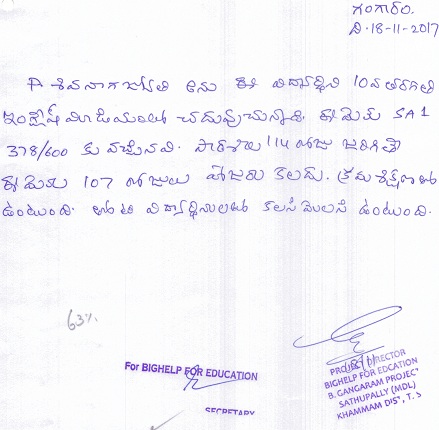 గంగారం.
ది.18-11-2017
A శివనాగజ్యోతి అను ఈ విద్యార్థిని 10వ తరగతి
ఇంగ్లీష్ మీడియంలో చదువుచున్నది. ఈమెకు SA 1
378/600 కు వచ్చినవి. పాఠశాల 114 రోజు జరిగితే
ఈమెకు 107 రోజులు హాజరు కలదు. క్రమశిక్షణతో
ఉంటుంది. తోటి విద్యార్థినులతో కలసి మెలసి ఉంటుంది.
63%
For BIGHELP FOR EDUCATION
SECRETARY
18/11
PROJECT DIRECTOR
BIGHELP FOR EDCATION
B. GANGARAM PROJECT
SATHUPALLY (MDL)
KHAMMAM DIST, T.S